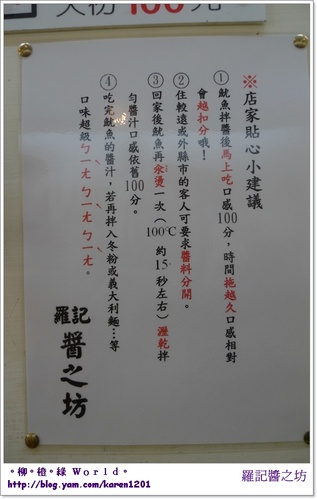 大份 100元
※店家貼心小建議
①魷魚拌醬後馬上吃口感100分，時間拖越久口感相對
會越扣分哦！
②住較遠或外縣市的客人可要求醬料分開。
③回家後魷魚再汆燙一次（100℃ 約15秒左右）瀝乾拌
勻醬汁口感依舊100分。
④吃完魷魚的醬汁，若再拌入冬粉或義大利麵…等
口味超級ㄅㄧㄤˋㄅㄧㄤˋㄅㄧㄤˋ。
羅記
醬之坊
。柳。橙。綠 World。
http://blog.yam.com/karen1201
羅記醬之坊